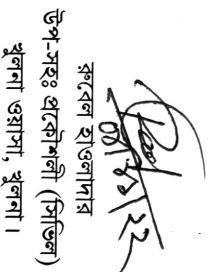 ০৮/১১/২২
রুবেল হাওলাদার
উপ-সহঃ প্রকৌশলী (সিভিল)
খুলনা ওয়াসা, খুলনা।